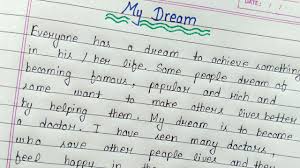 DATE: / /
My Dream
Everyone has a dream to achieve something
in his / her life. Some people dream of
becoming famous, popular and rich and
some want to make others lives better
by helping them. My dream is to become
a doctor. I have seen many doctors
who save other people lives and they
feel happy in this